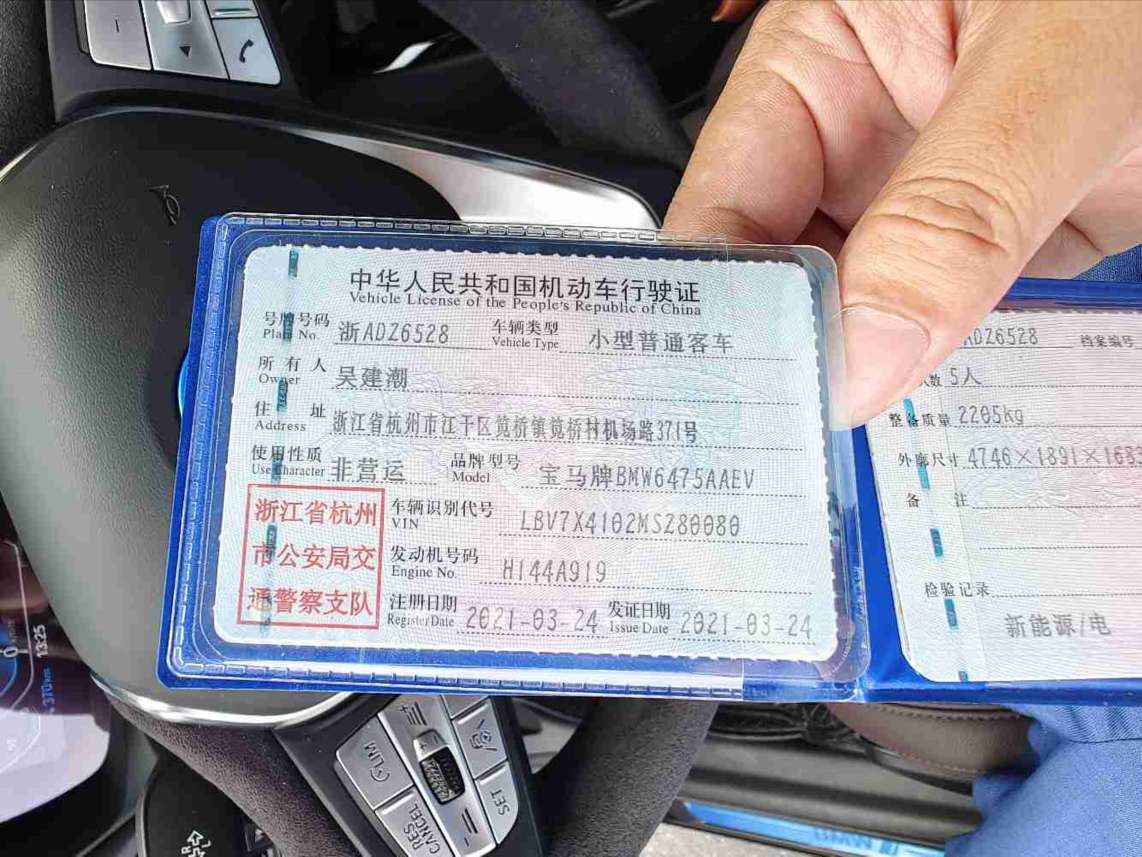 中华人民共和国机动车行驶证
Vehicle License of the People's Republic of China
号牌号码 浙ADZ6528 车辆类型 小型普通客车
Plate No. Vehicle Type
所有人 吴建潮
Owner
住址 浙江省杭州市江干区笕桥镇笕桥村机场路371号
Address
使用性质 非营运 品牌型号 宝马牌BMW6475AAEV
Use Character Model
浙江省杭州
市公安局交
通警察支队
车辆识别代号 LBV7X4102MSZ80080
VIN
发动机号码 H144A919
Engine No.
注册日期 2021-03-24 发证日期 2021-03-24
Register Date Issue Date
ADZ6528 档案编号
人数 5人
整备质量 2205kg
外廓尺寸 4746×1891×1683
备注
检验记录
新能源/电
13:25
370 km
LIM
RES
CANCEL
SET
BMW